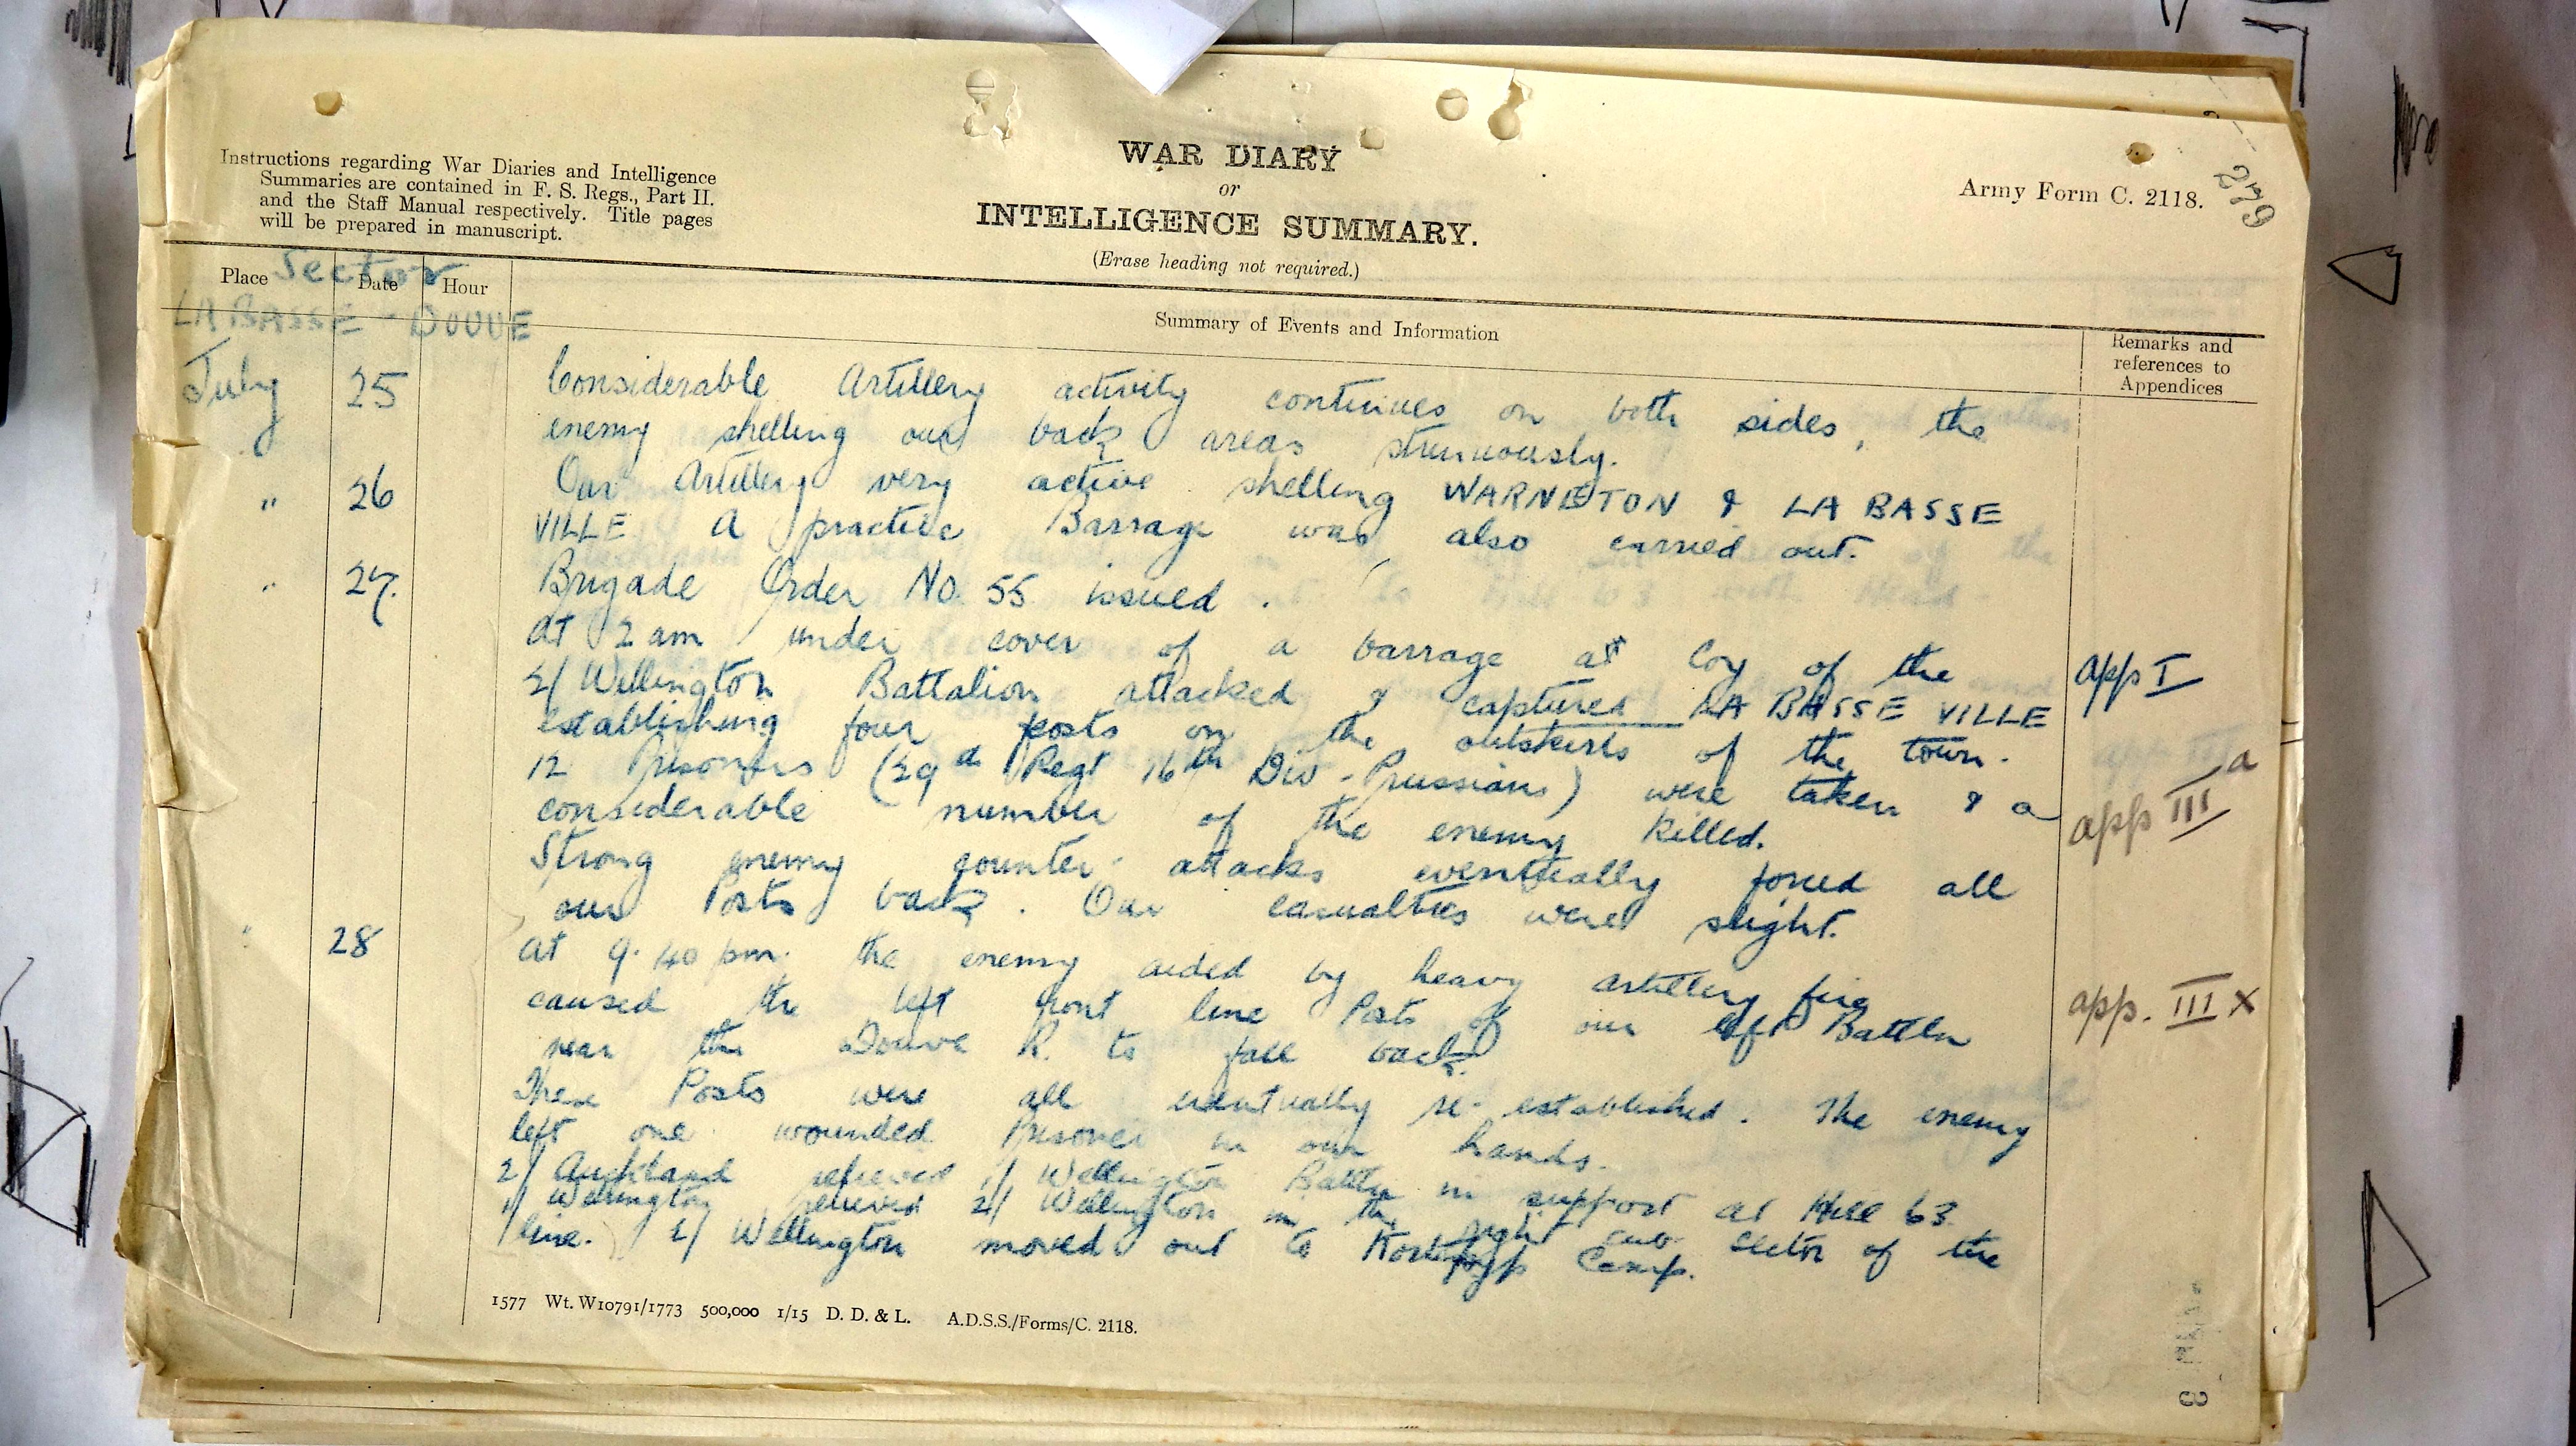 Instructions regarding War Diaries and Intelligence
Summaries are contained in F. S. Regs., Part II.
and the Staff Manual respectively. Title pages
will be prepared in manuscript.
WAR DIARY
or
INTELLIGENCE SUMMARY.
(Erase heading not required.)
Army Form C. 2118.
279
Sector
Place Date Hour
LA BASSE - DOUVE
Summary of Events and Information
Remarks and
references to
Appendices
July 25 Considerable Artillery activity continues on both sides, the
enemy shelling our back areas strenuously.
" 26 Our Artillery very active shelling WARNETON & LA BASSE
VILLE. A practice Barrage was also carried out.
" 27. Brigade Order No. 55 issued.
At 2 am under cover of a barrage a Coy of the app I
2/ Wellington Battalion attacked & captured LA BASSE VILLE
establishing four posts on the outskirts of the town.
12 Prisoners (29d Regt 16th Div - Prussians) were taken & a app III a
considerable number of the enemy killed.
Strong enemy counter-attacks eventually forced all
our Posts back. Our casualties were slight.
" 28 At 9.40 pm. the enemy aided by heavy artillery fire
caused the left front line Posts of our left Battln app. III x
near the Douve R. to fall back.
These Posts were all eventually re-established. The enemy
left one wounded Prisoner in our hands.
2/ Auckland relieved 1/ Wellington Battln in support at Hill 63.
1/ Wellington relieved 2/ Wellington in the right sub-sector of the
line. 2/ Wellington moved out to Kortepyp Camp.
1577 Wt. W10791/1773 500,000 1/15 D. D. & L. A.D.S.S./Forms/C. 2118.